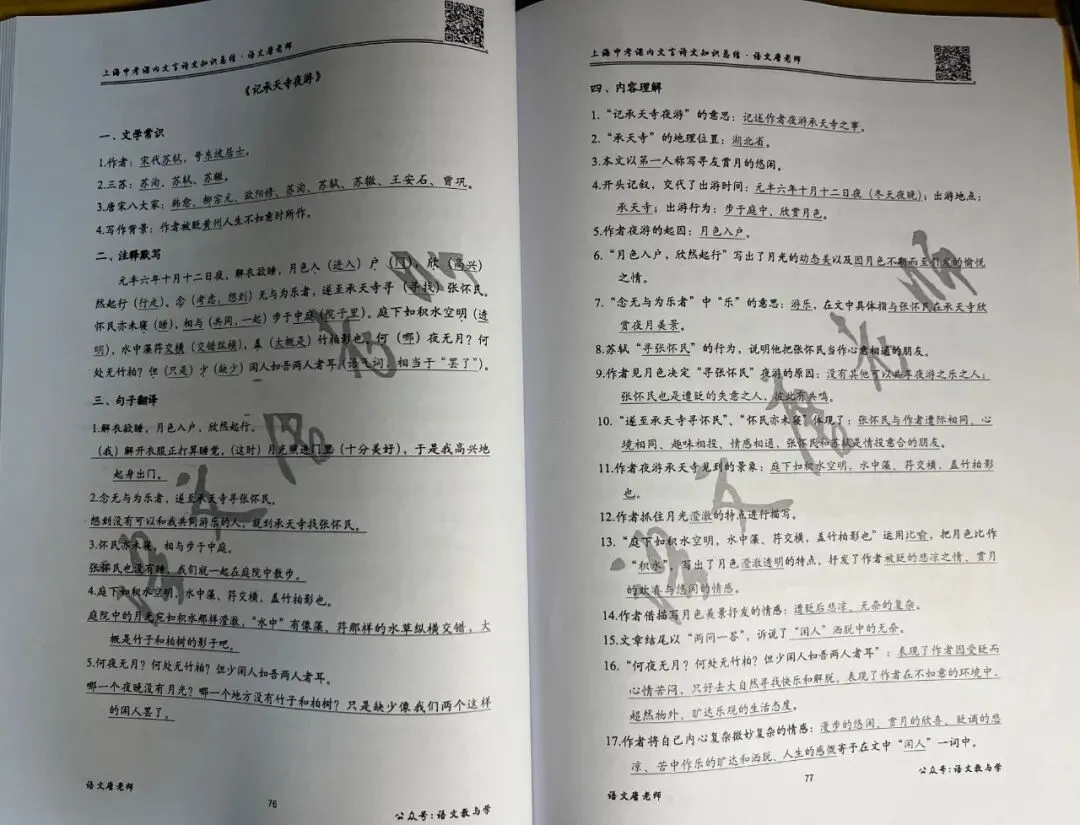 上海中考课内文言诗文知识总结·语文唐老师
《记承天寺夜游》
一、文学常识
1.作者：宋代苏轼，号东坡居士。
2.三苏：苏洵、苏轼、苏辙。
3.唐宋八大家：韩愈、柳宗元、欧阳修、苏洵、苏轼、苏辙、王安石、曾巩。
4.写作背景：作者被贬黄州人生不如意时所作。
二、注释默写
元丰六年十月十二日夜，解衣欲睡，月色入（进入）户（门），欣（高兴）
然起行（行走）。念（考虑，想到）无与为乐者，遂至承天寺寻（寻找）张怀民。
怀民亦未寝（睡），相与（共同，一起）步于中庭（院子里）。庭下如积水空明（透
明），水中藻荇交横（交错纵横），盖（大概是）竹柏影也。何（哪）夜无月？何
处无竹柏？但（只是）少（缺少）闲人如吾两人者耳（语气词，相当于“罢了”）。
三、句子翻译
1.解衣欲睡，月色入户，欣然起行。
（我）解开衣服正打算睡觉，（这时）月光照进门里（十分美好），于是我高兴地
起身出门。
2.念无与为乐者，遂至承天寺寻张怀民。
想到没有可以和我共同游乐的人，就到承天寺找张怀民。
3.怀民亦未寝，相与步于中庭。
张怀民也没有睡，我们就一起在庭院中散步。
4.庭下如积水空明，水中藻、荇交横，盖竹柏影也。
庭院中的月光宛如积水那样澄澈，“水中”有像藻、荇那样的水草纵横交错，大
概是竹子和柏树的影子吧。
5.何夜无月？何处无竹柏？但少闲人如吾两人者耳。
哪一个夜晚没有月光？哪一个地方没有竹子和柏树？只是缺少像我们两个这样
的闲人罢了。
语文唐老师
76
公众号：语文教与学
上海中考课内文言诗文知识总结·语文唐老师
四、内容理解
1.“记承天寺夜游”的意思：记述作者夜游承天寺之事。
2.“承天寺”的地理位置：湖北省。
3.本文以第一人称写寻友赏月的悠闲。
4.开头记叙，交代了出游时间：元丰六年十月十二日夜（冬天夜晚）；出游地点：
承天寺；出游行为：步于庭中、欣赏月色。
5.作者夜游的起因：月色入户。
6.“月色入户，欣然起行”写出了月光的动态美以及因月色不期而至引发的愉悦
之情。
7.“念无与为乐者”中“乐”的意思：游乐，在文中具体指与张怀民在承天寺欣
赏夜月美景。
8.苏轼“寻张怀民”的行为，说明他把张怀民当作心意相通的朋友。
9.作者见月色决定“寻张怀民”夜游的原因：没有其他可以共享夜游之乐之人；
张怀民也是遭贬的失意之人，彼此有共鸣。
10.“遂至承天寺寻怀民”、“怀民亦未寝”体现了：张怀民与作者遭际相同、心
境相同、趣味相投、情感相通，张怀民和苏轼是情投意合的朋友。
11.作者夜游承天寺见到的景象：庭下如积水空明，水中藻、荇交横，盖竹柏影
也。
12.作者抓住月光澄澈的特点进行描写。
13.“庭下如积水空明，水中藻、荇交横，盖竹柏影也”运用比喻，把月色比作
“积水”，写出了月色澄澈透明的特点，抒发了作者被贬的悲凉之情、赏月
的欢喜与悠闲的情感。
14.作者借描写月色美景抒发的情感：遭贬后悲凉、无奈的复杂。
15.文章结尾以“两问一答”，诉说了“闲人”洒脱中的无奈。
16.“何夜无月？何处无竹柏？但少闲人如吾两人者耳”：表现了作者因受贬而
心情苦闷，只好去大自然寻找快乐和解脱。表现了作者在不如意的环境中，
超然物外、旷达乐观的生活态度。
17.作者将自己内心复杂微妙复杂的情感：漫步的悠闲、赏月的欣喜、贬谪的悲
凉、苦中作乐的旷达和洒脱、人生的感慨寄予在文中“闲人”一词中。
语文唐老师
77
公众号：语文教与学